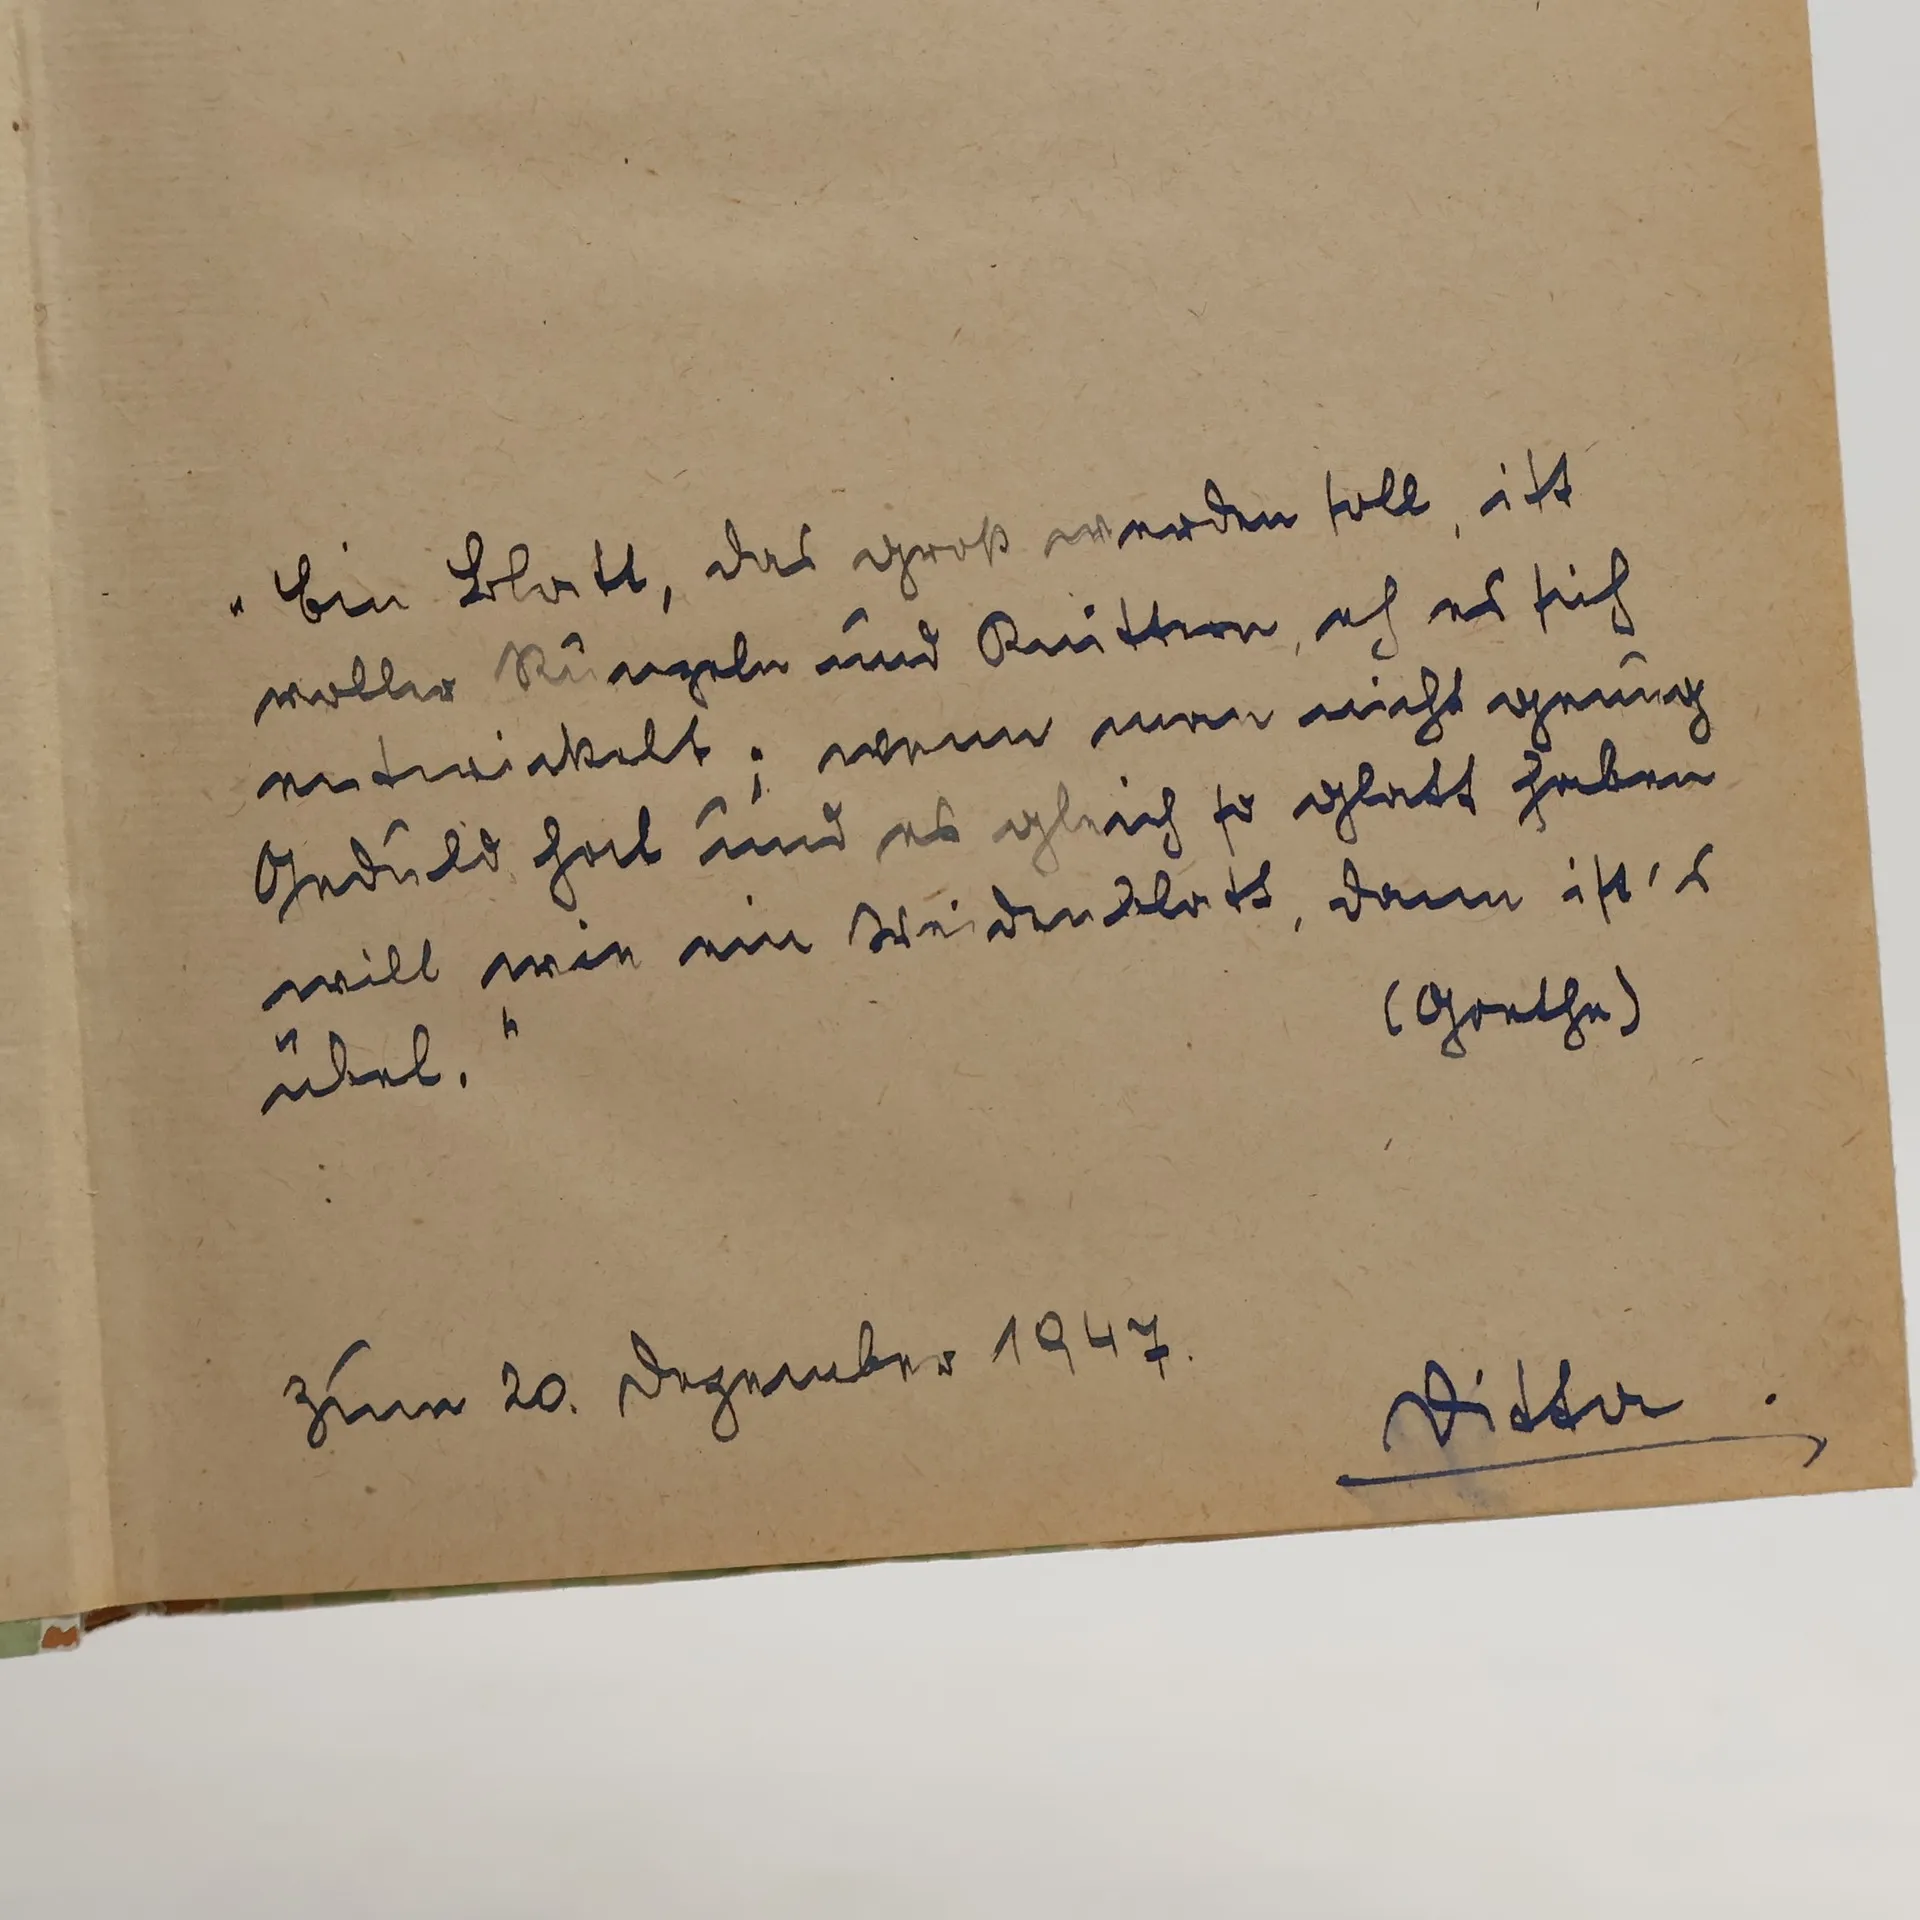 "Ein Blatt, das groß werden soll, ist
voller Runzeln und Knittern, eh es sich
entwickelt; wenn man nicht genug
Geduld hat und es gleich so glatt haben
will wie ein Weidenblatt, dann ist's
übel."
(Goethe)
Zum 20. Dezember 1947.